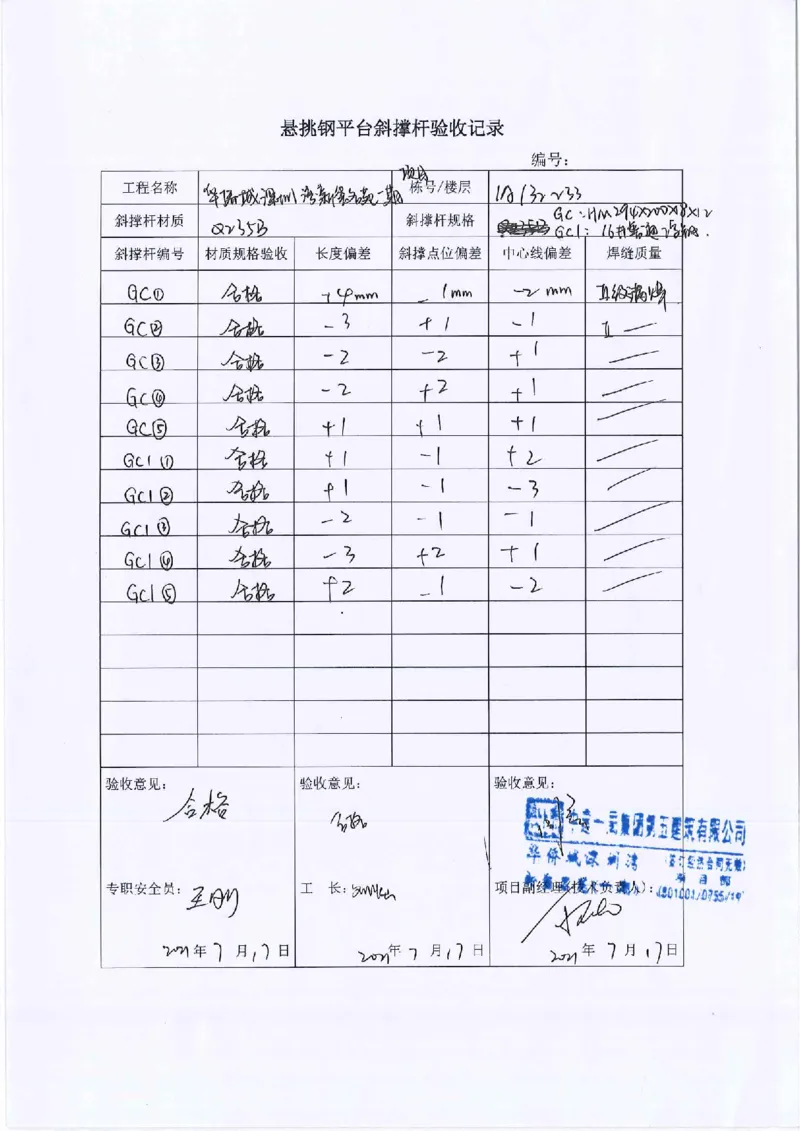 悬挑钢平台斜撑杆验收记录
编号：
工程名称 华侨城深圳湾新玺名苑二期项目 栋号/楼层 1A 132~233
斜撑杆材质 Q235B 斜撑杆规格 GC：HM294×200×8×12
GC1：16#普通
斜撑杆编号 材质规格验收 长度偏差 斜撑点位偏差 中心线偏差 焊缝质量
GC① 合格 +4mm -1mm -2mm Ⅱ级满焊
GC② 合格 -3 +1 -1 Ⅱ
GC③ 合格 -2 -2 +1
GC④ 合格 -2 +2 +1
GC⑤ 合格 +1 +1 +1
GC1① 合格 +1 -1 +2
GC1② 合格 +1 -1 -3
GC1③ 合格 -2 -1 -1
GC1④ 合格 -3 +2 +1
GC1⑤ 合格 +2 -1 -2
验收意见： 验收意见： 验收意见：
合格 合格
一局集团第五建筑有限公司
华侨城深圳湾 (签订经济合同无效)
项目部
专职安全员：王刚 工 长： 项目副经理(技术负责人)：
2021年7月17日 2021年7月17日 2021年7月17日